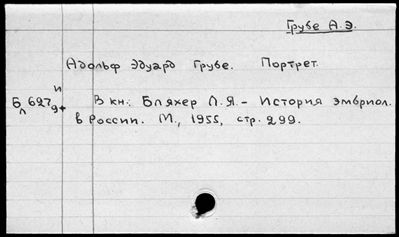 Грубе А.Э.
Адольф Эдуард Грубе. Портрет.
И
Бл 627 94
В кн.: Бляхер Л.Я. - История эмбриол.
в России. М., 1955, стр. 299.